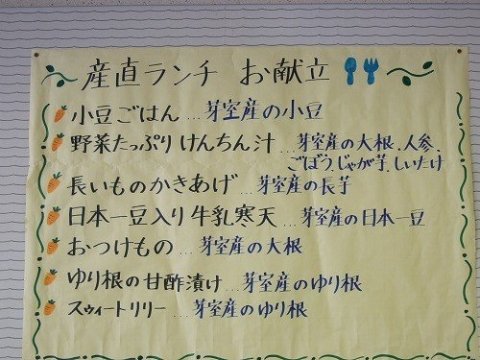 産直ランチ お献立
小豆ごはん…芽室産の小豆
野菜たっぷりけんちん汁…芽室産の大根、人参、
ごぼう、じゃが芋、しいたけ
長いものかきあげ…芽室産の長芋
日本一豆入り牛乳寒天…芽室産の日本一豆
おつけもの…芽室産の大根
ゆり根の甘酢漬け…芽室産のゆり根
スウィートリリー…芽室産のゆり根